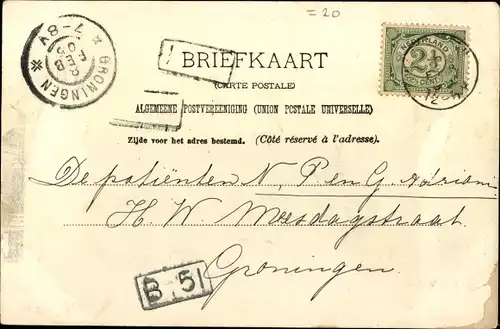 = 20
BRIEFKAART
(CARTE POSTALE)
ALGEMEENE POSTVEREENIGING (UNION POSTALE UNIVERSELLE)
Zijde voor het adres bestemd. (Côté réservé à l'adresse).
GRONINGEN
8 FEB 05
7-8V
NEDERLAND
2½
De patiënten N, P en G Adriani
H. W. Mesdagstraat
Groningen.
B 51